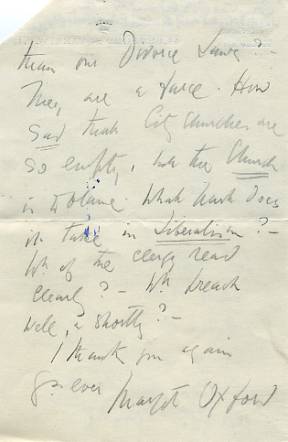 than our Divorce Laws? -
They are a farce. How
sad that City Churches are
so empty, but the Church
is to blame. What part does
it take in Liberalism? -
Wh of the clergy read
clearly? - Wh preach
well, & shortly? -
I thank you again
Yrs ever Margot Oxford